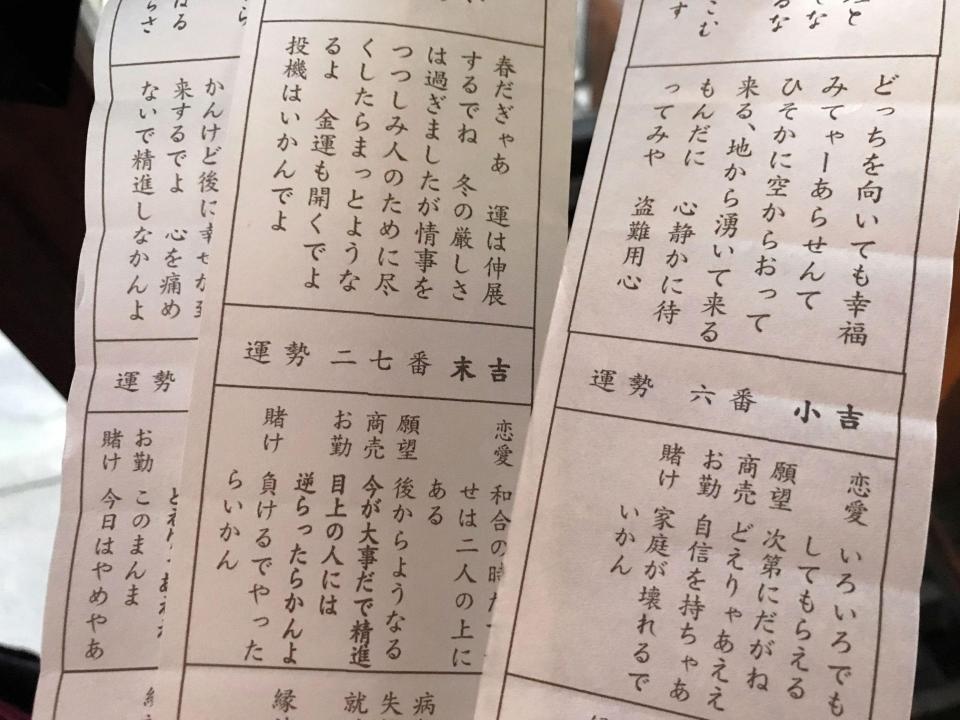 どっちを向いても幸福
みてゃーあらせんて
ひそかに空からおって
来る、地から湧いて来る
もんだに 心静かに待
ってみや 盗難用心
運勢 六番 小吉
恋愛 いろいろでも
してもらえる
願望 次第にだがね
商売 どえりゃあええ
お勤 自信を持ちゃあ
賭け 家庭が壊れるで
いかん
春だぎゃあ 運は伸展
するでね 冬の厳しさ
は過ぎましたが情事を
つつしみ人のために尽
くしたらまっとような
るよ 金運も開くでよ
投機はいかんでよ
運勢 二七番 末吉
恋愛 和合の時だ
せは二人の上に
ある
願望 後からようなる
商売 今が大事だで精進
お勤 目上の人には
逆らったらかんよ
賭け 負けるでやった
らいかん
かんけど後に幸せが到
来するでよ 心を痛め
ないで精進しなかんよ
運勢
お勤 このまんま
賭け 今日はやめやあ